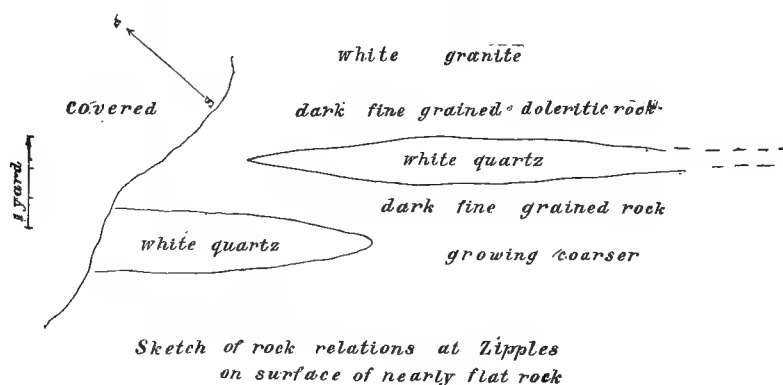 N
S
white granite
covered
dark fine grained doleritic rock
white quartz
1 yard
dark fine grained rock
white quartz
growing coarser
Sketch of rock relations at Zipples
on surface of nearly flat rock